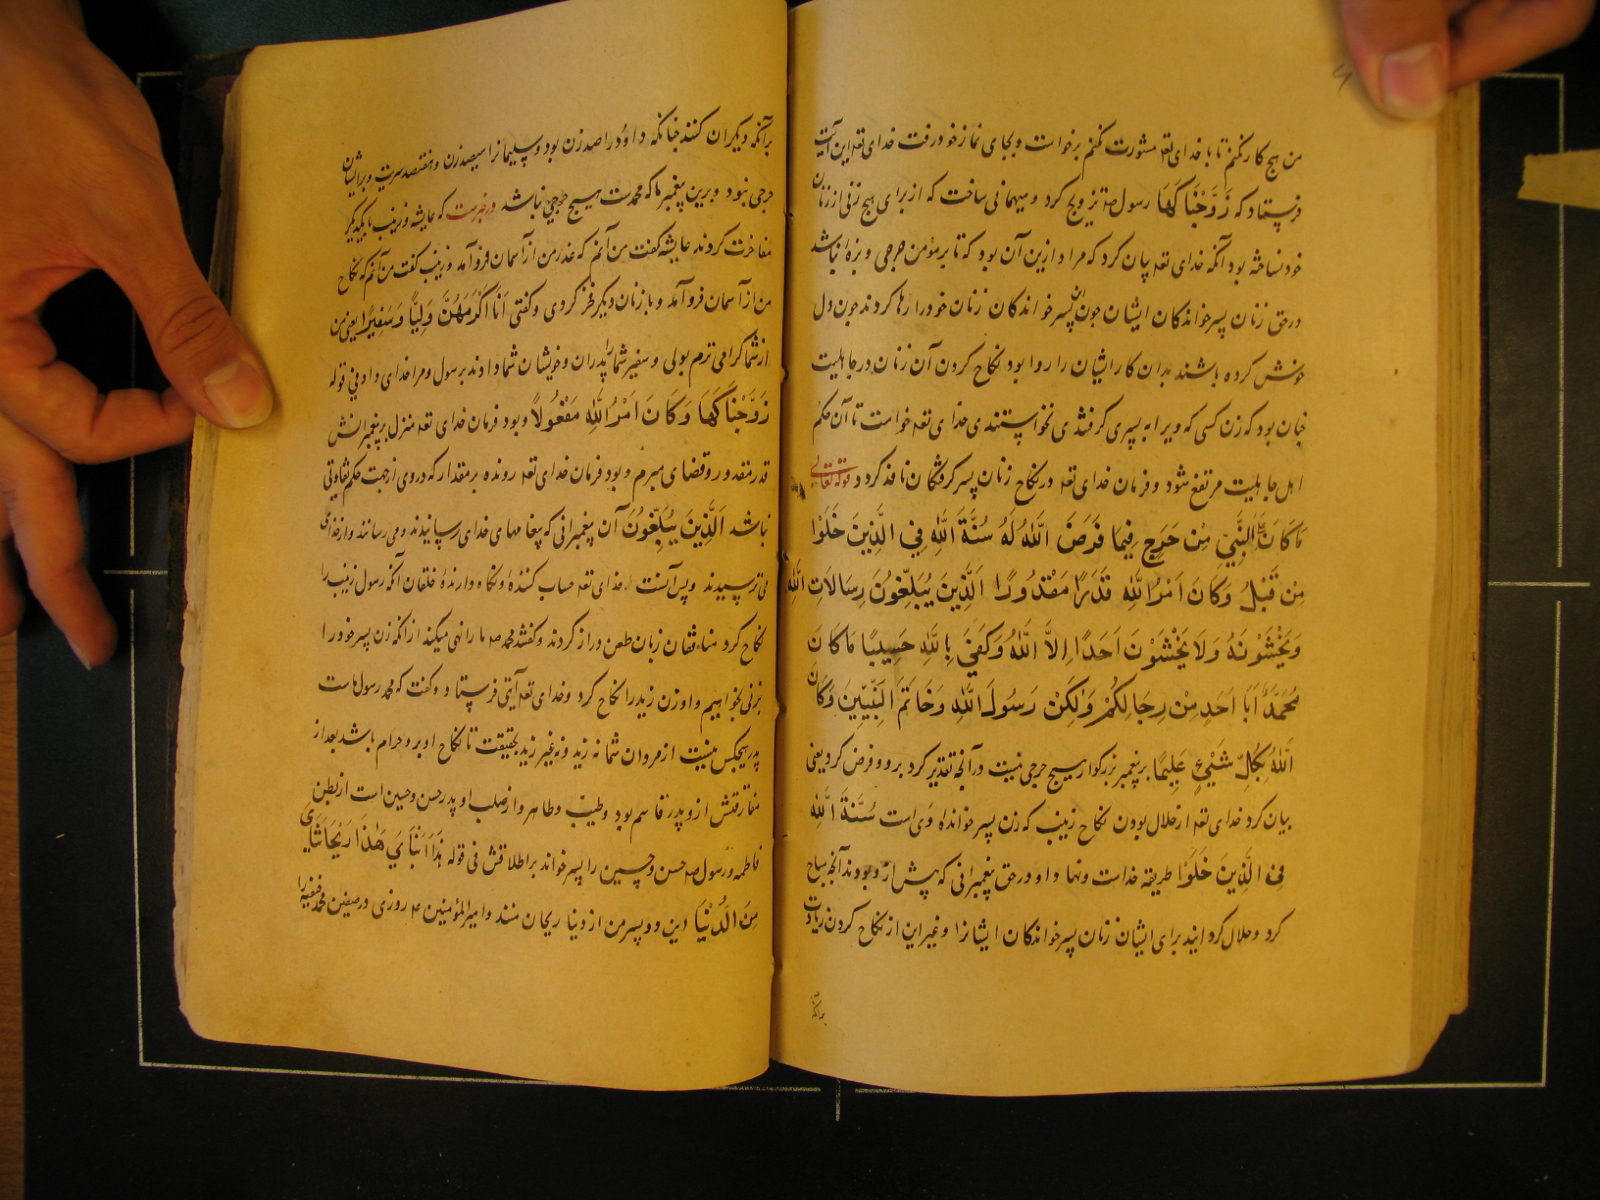 من هیچ کار نکنم تا با خدای تعه مشورت نکنم برخواست و بجای نماز خود رفت خدای تعه این آیت
فرستاد که زَوَّجْنَاكَهَا رسول صه تزویج کرد و میهمانی ساخت که از برای هیچ زنی از زنان
خود نساخته بود آنگه خدای تعه بیان کرد که مراد ازین آن بود که تا بر مؤمن حرجی و بزهٔ نباشد
در حق زنان پسر خواندگان ایشان چون آن پسر خواندگان زنان خود را رها کردند چون دل
خوش کرده باشند بدان کار ایشان را روا بود نکاح کردن آن زنان در جاهلیت
چنان بود که زن کسی که ویرا به پسری گرفتندی نخواستندی خدای تعه خواست تا آن حکم
اهل جاهلیت مرتفع شود و فرمان خدای تعه در نکاح زنان پسر گرفتگان نافذ کرد قوله تعالی
مَا كَانَ عَلَى النَّبِيِّ مِنْ حَرَجٍ فِيمَا فَرَضَ اللّٰهُ لَهُ سُنَّةَ اللّٰهِ فِي الَّذِينَ خَلَوْا
مِن قَبْلُ وَكَانَ اَمْرُ اللّٰهِ قَدَرًا مَقْدُورًا الَّذِينَ يُبَلِّغُونَ رِسَالَاتِ اللّٰهِ
وَيَخْشَوْنَهُ وَلَا يَخْشَوْنَ اَحَدًا اِلَّا اللّٰهَ وَكَفَىٰ بِاللّٰهِ حَسِيبًا مَا كَانَ
مُحَمَّدٌ اَبَا اَحَدٍ مِنْ رِجَالِكُمْ وَلٰكِنْ رَسُولَ اللّٰهِ وَخَاتَمَ النَّبِيِّينَ وَكَانَ
اللّٰهُ بِكُلِّ شَيْءٍ عَلِيمًا بر پیغمبر بزرگوار هیچ حرجی نیست در آنچه تقدیر کرد برو و فرض کرد یعنی
بیان کرد خدای تعه از حلال بودن نکاح زینب که زن پسر خوانده وی است سُنَّةَ اللّٰهِ
فِي الَّذِينَ خَلَوْا طریقه خداست ونهاد او در حق پیغمبرانی که پیش ازو بودند آنچه مباح
کرد و حلال گردانید برای ایشان زنان پسر خواندگان ایشانرا و غیر این از نکاح کردن زیادت
برآنکه
برآنکه دیگران کنند چنانکه داوُد را صد زن بود و سلیمانرا سیصد زن و هفتصد سریت و برایشان
حرجی نبود و برین پیغمبر ما که محمدست هیچ حرجی نباشد در خبرست که عایشه و زینب با یکدیگر
مفاخرت کردند عایشه گفت من آنم که عذر من از آسمان فروآمد و زینب گفت من آنم که نکاح
من از آسمان فروآمد و با زنان دیگر فخر کردی و گفتی اَنَا اَكْرَمُهُنَّ وَلِيًّا وَسَفِيرًا یعنی من
از شما گرامی ترم بولی و سفیر شما را پدران و خویشان شما دادند برسول و مرا خدای داد فی قوله
زَوَّجْنَاكَهَا وَكَانَ اَمْرُ اللّٰهِ مَفْعُولًا و بود فرمان خدای تعه منزل بر پیغمبرانش
قدر مقدور و قضای مبرم و بود فرمان خدای تعه رونده بر مقدار که در وی از جهت حکم تفاوتی
نباشد الَّذِينَ يُبَلِّغُونَ آن پیغمبرانی که پیغامهای خدای رسانیدند و می رسانند و از خدای
می ترسیدند و بس است خدای تعه حساب کننده و نگاه دارندهٔ خلقان آنکه رسول زینب را
نکاح کرد منافقان زبان طعن دراز کردند و گفتند محمد صه ما را نهی میکند از آنکه زن پسر خود را
بزنی بخواهیم و او زن زید را نکاح کرد و خدای تعه آیتی فرستاد و گفت که محمد رسول ماست
پدر هیچکس نیست از مردان شما نه زید و نه غیر زید بحقیقت تا نکاح او برو حرام باشد بعد از
مفارقتش ازو پدر قاسم بود و طیّب و طاهر و از صلب او پدر حسن و حسین است از بطن
فاطمه و رسول صه حسن و حسین را پسر خواند بر اطلاقش فی قوله هٰذَا رَيْحَانَتَايَ
مِنَ الدُّنْيَا این دو پسر من از دنیا ریحان منند و امیرالمؤمنین ع روزی در صفین محمد حنفیه را